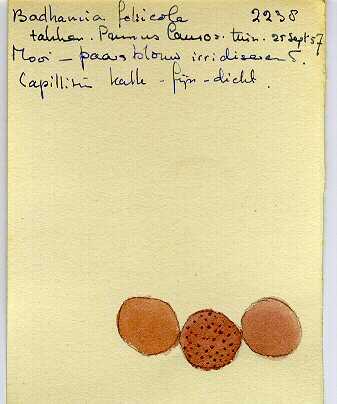 Badhamia folicola 2238
takken. Prunus Lauroc. tuin. 25 Sept 57
Mooi - paars blauw irridiserend.
Capillitium kalk - fijn - dicht.